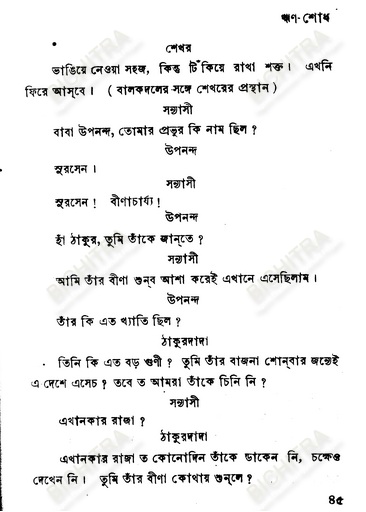 ঋণ-শোধ
শেখর
ভাঙিয়ে নেওয়া সহজ, কিন্তু টিঁকিয়ে রাখা শক্ত। এখনি
ফিরে আস্‌বে। ( বালকদলের সঙ্গে শেখরের প্রস্থান )
সন্ন্যাসী
বাবা উপনন্দ, তোমার প্রভুর কি নাম ছিল ?
উপনন্দ
সুরসেন।
সন্ন্যাসী
সুরসেন ! বীণাচার্য্য !
উপনন্দ
হাঁ ঠাকুর, তুমি তাঁকে জান্‌তে ?
সন্ন্যাসী
আমি তাঁর বীণা শুন্‌ব আশা করেই এখানে এসেছিলাম।
উপনন্দ
তাঁর কি এত খ্যাতি ছিল ?
ঠাকুরদাদা
তিনি কি এত বড় গুণী ? তুমি তাঁর বাজনা শোন্‌বার জন্তেই
এ দেশে এসেচ ? তবে ত আমরা তাঁকে চিনি নি ?
সন্ন্যাসী
এখানকার রাজা ?
ঠাকুরদাদা
এখানকার রাজা ত কোনোদিন তাঁকে ডাকেন নি, চক্ষেও
দেখেন নি। তুমি তাঁর বীণা কোথায় শুন্‌লে ?
৪৫
BICHITRA